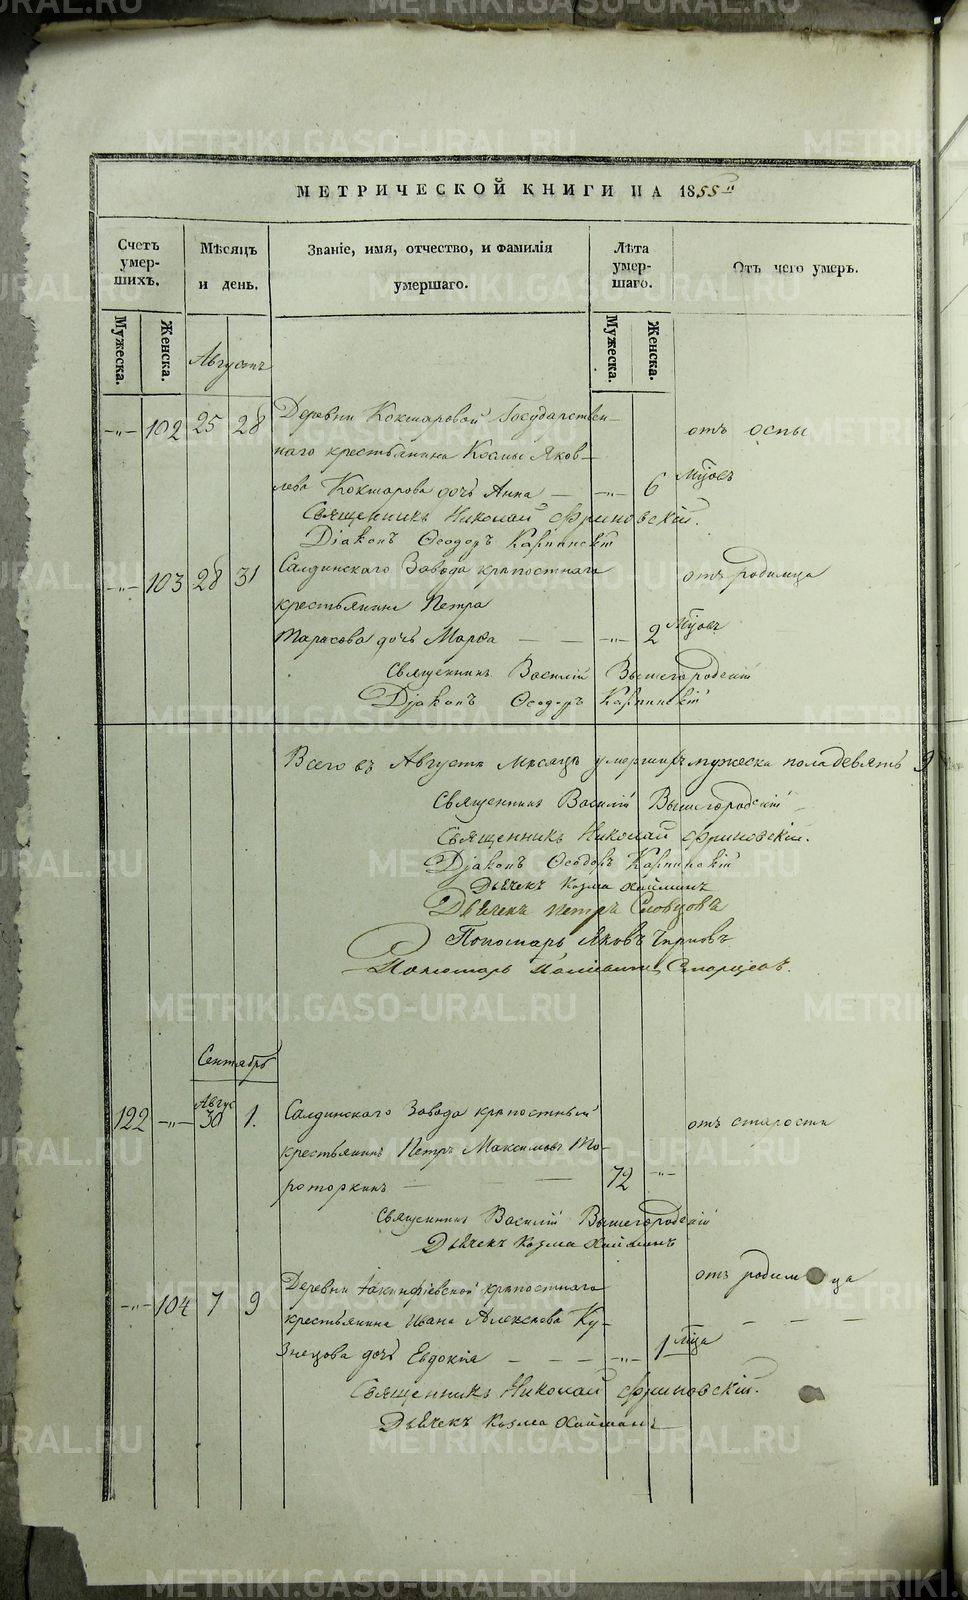 МЕТРИЧЕСКОЙ КНИГИ НА 1855й
Счетъ умер-шихъ.
Мѣсяцъ и день.
Званіе, имя, отчество, и фамилія умершаго.
Лѣта умер-шаго.
Отъ чего умеръ.
Мужеска.
Женска.
Мужеска.
Женска.
Августъ
-"- 102 25 28 Деревни Кокшаровой Государствен- отъ оспы
наго крестьянина Космы Яков-
лева Кокшарова дочь Анна — -"- 6 Мцовъ
Священникъ Николай Фриновскій.
Діаконъ Ѳеодоръ Карпинскій
-"- 103 28 31 Салдинскаго Завода крѣпостнаго отъ родимца
крестьянина Петра
Тарасова дочь Марѳа — — -"- 2 Мцовъ
Священникъ Василій Вышегородскій
Діаконъ Ѳеодоръ Карпинскій
Всего въ Августѣ Мѣсяцѣ умершихъ мужеска пола девять 9
Священникъ Василій Вышегородскій
Священникъ Николай Фриновскій.
Діаконъ Ѳеодоръ Карпинскій
Дьячекъ Козма Хайминъ
Дьячекъ Петръ Словцовъ
Пономарь Яковъ Чирковъ
Пономарь
Сентябрь
Авгус
122 -"- 30 1. Салдинскаго Завода крѣпостный отъ старости
крестьянинъ Петръ Максимовъ То-
роторкинъ — — 72 -"-
Священникъ Василій Вышегородскій
Дьячекъ Козма Хайминъ
-"- 104 7 9 Деревни Акинфіевской крѣпостнаго отъ родимца
крестьянина Ивана Алексѣева Ку-
знецова дочь Евдокія — — -"- 1 мца
Священникъ Николай Фриновскій.
Дьячекъ Козма Хайминъ
METRIKI.GASO-URAL.RU